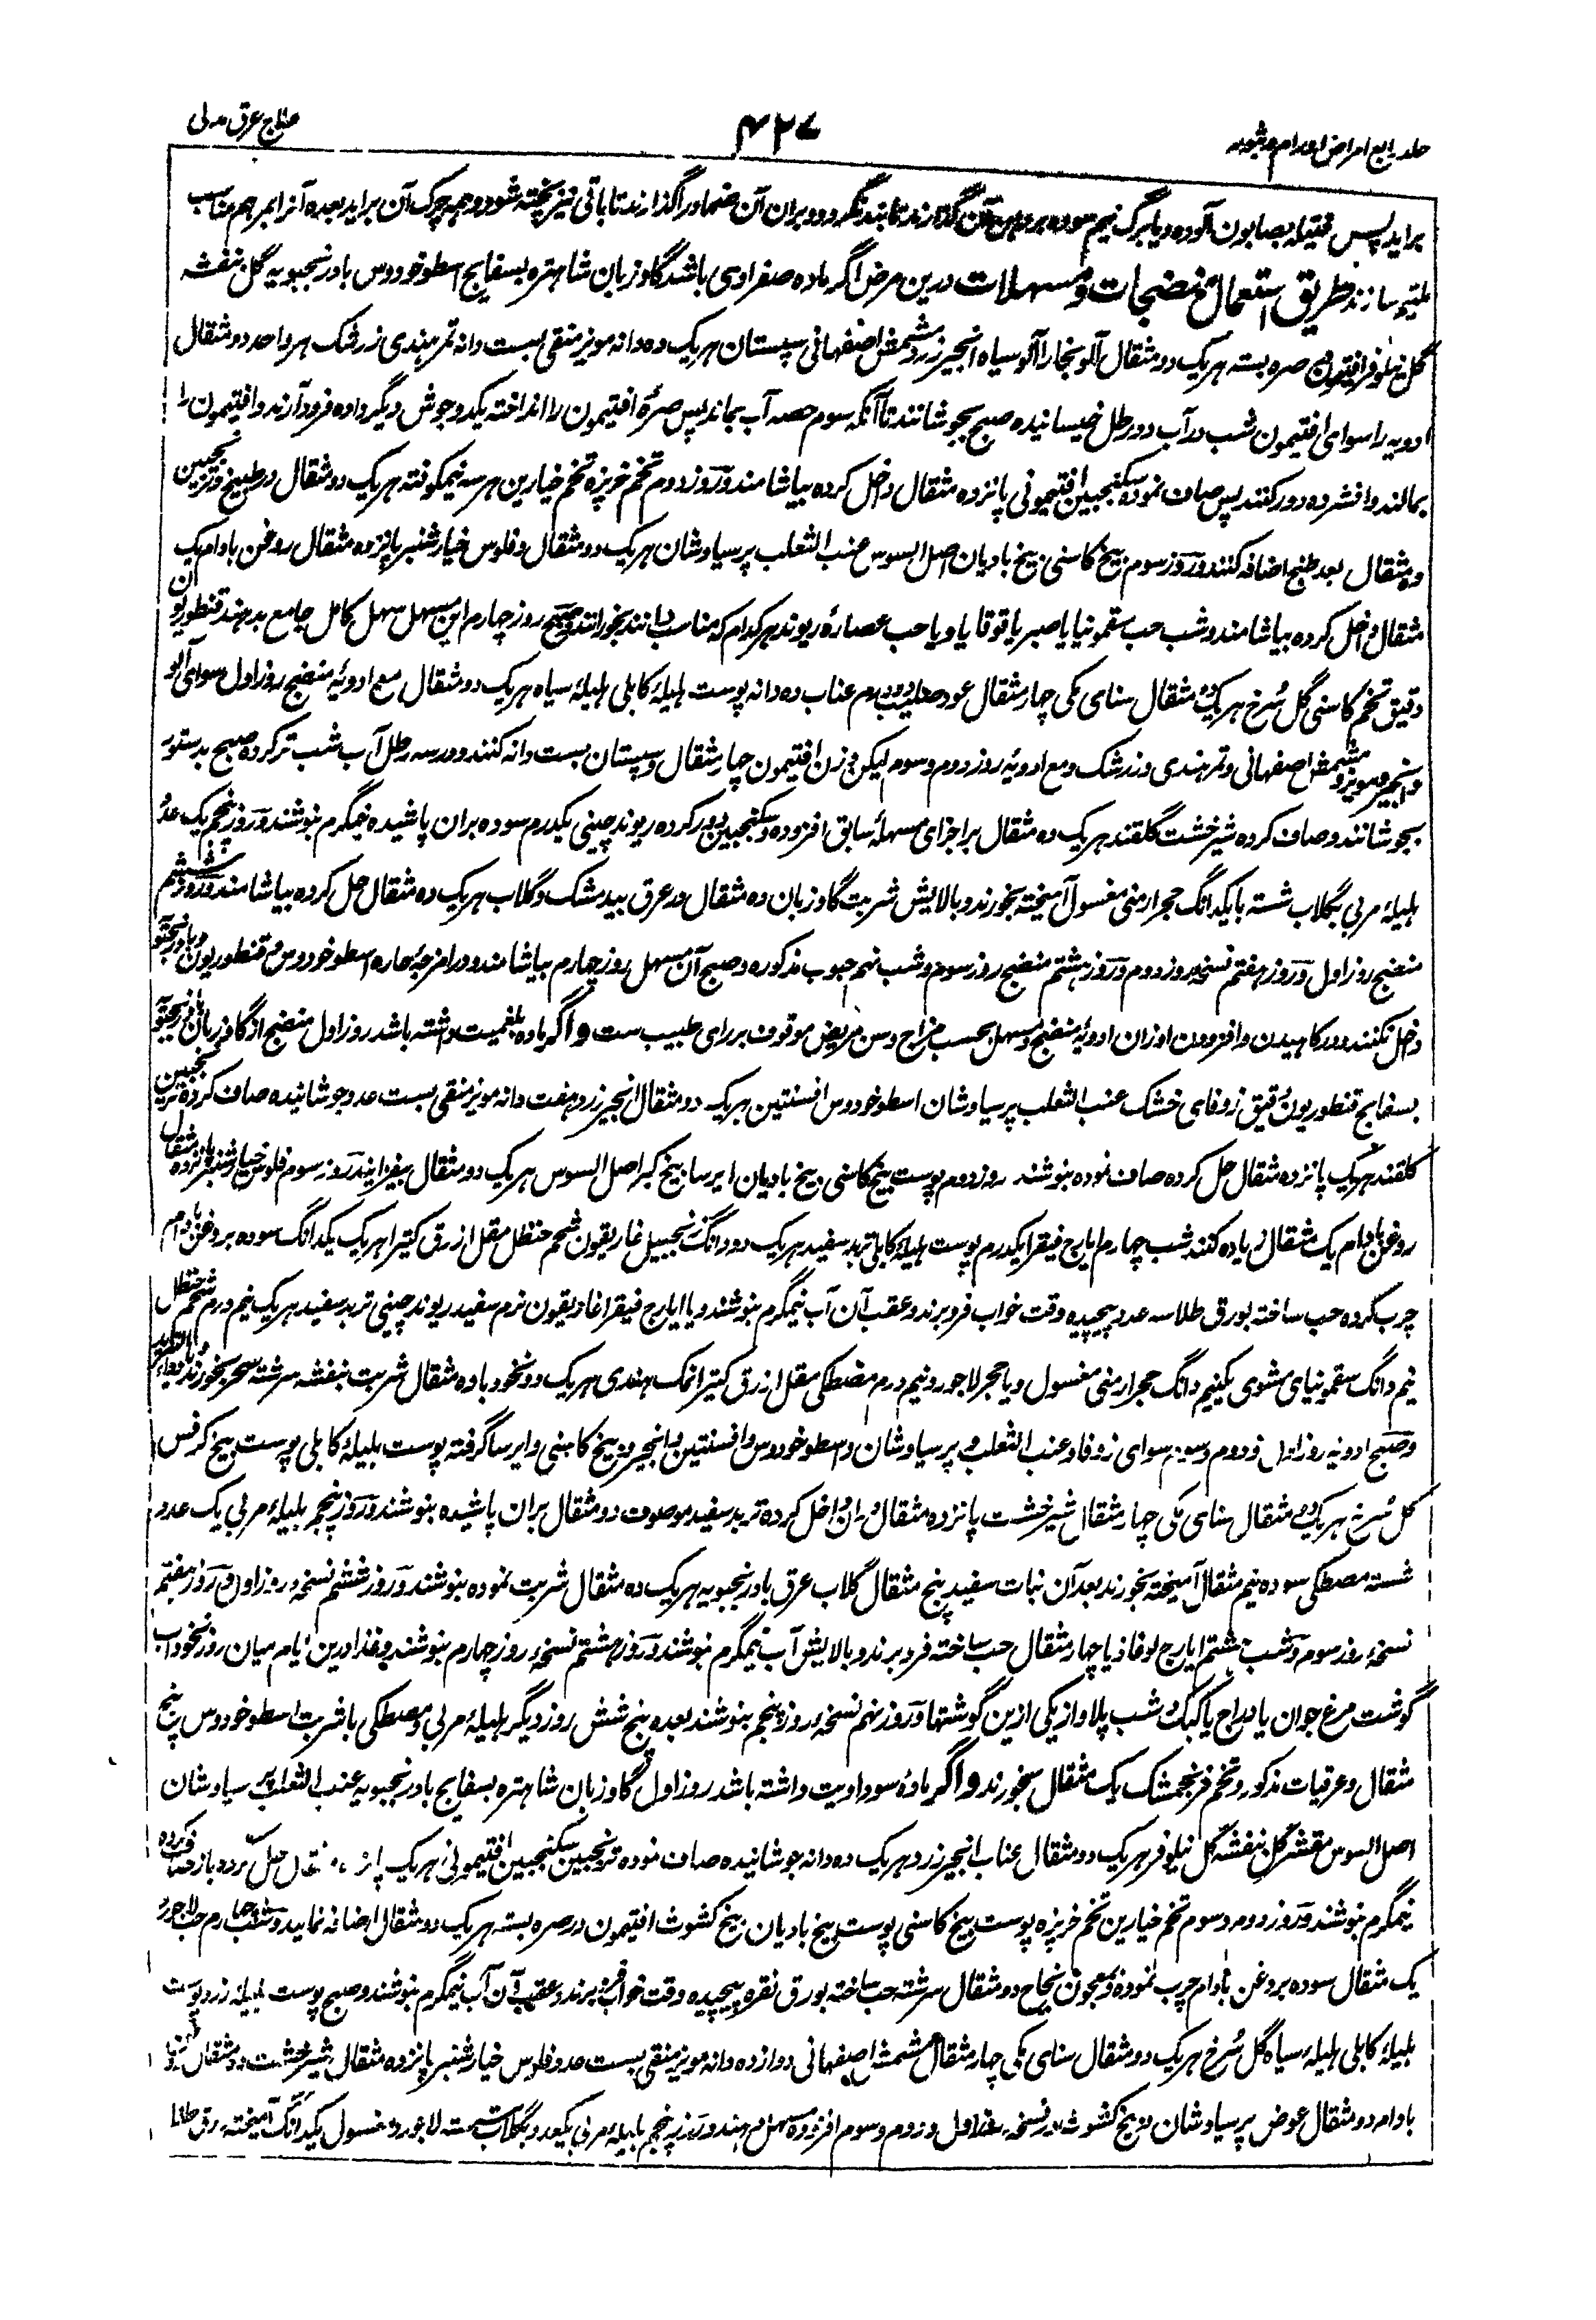 جلد رابع امراض اورام و بثور
۴۲۷
علاج عرق مدنی
براید پس فتیله بصابون آلوده و یا برگ نیم سوده بر دهن آن گذارند تا بند نگردد و بران آن ضماد را گذارند تا باقی نیز پخته شود و همه چرک آن براید بعده آنرا بمرهم مناسب
ملتیم سازند طریق استعمال منضجات و مسهلات درین مرض اگر ماده صفراوی باشد گاوزبان شاهتره بسفایج اسطوخودوس بادرنجبویه گل بنفشه
گل نیلوفر افتیمون در صره بسته هر یک دو مثقال آلو بخارا آلو سیاه انجیر زرد مشمش اصفهانی سپستان هر یک ده دانه مویز منقی بست دانه تمر هندی زرشک هر واحد دو مثقال
ادویه را سوای افتیمون شب در آب دو رطل خیسانیده صبح بجوشانند تا آنکه سوم حصه آب بماند پس صرهٔ افتیمون را انداخته یکدو جوش دیگر داده فرود آرند و افتیمون را
بمالند و افشرده دور کنند پس صاف نموده سکنجبین افتیمونی پانزده مثقال داخل کرده بیاشامند و روز دوم تخم خرپزه تخم خیارین هر سه نیمکوفته هر یک دو مثقال در طبیخ و ترنجبین
ده مثقال بعد طبخ اضافه کنند و روز سوم بیخ کاسنی بیخ بادیان اصل السوس عنب الثعلب پرسیاوشان هر یک دو مثقال و فلوس خیارشنبر پانزده مثقال روغن بادام یک
مثقال داخل کرده بیاشامند و شب حب سقمونیا یا صبر یا قوقایا و یا حب عصاره ریوند هر کدام که مناسب دانند بخورانند و صبح روز چارم این مسهل کامل جامع بدهند قنطوریون
دقیق تخم کاسنی گل سرخ هر یک دو مثقال سنای مکی چار مثقال عود صلیب دو درم عناب ده دانه پوست هلیلهٔ کابلی هلیلهٔ سیاه هر یک دو مثقال مع ادویهٔ منضج روز اول سوای آلو
و انجیر و مویز و مشمش اصفهانی و تمر هندی و زرشک و مع ادویهٔ روز دوم و سوم لیکن وزن افتیمون چار مثقال و سپستان بست دانه کنند و در سه رطل آب شب تر کرده صبح بدستور
بجوشانند و صاف کرده شیرخشت گلقند هر یک ده مثقال بر اجزای مسهلهٔ سابق افزوده و سکنجبین دور کرده ریوند چینی یکدرم سوده بران پاشیده نیمگرم بنوشند و روز پنجم یک عدد
هلیلهٔ مربی بگلاب شسته با یکدانگ حجر ارمنی مغسول آمیخته بخورند و بالایش شربت گاوزبان ده مثقال در عرق بیدمشک و گلاب هر یک ده مثقال حل کرده بیاشامند و روز ششم
منضج روز اول و روز هفتم نسخهٔ روز دوم و روز هشتم منضج روز سوم و شب نهم حبوب مذکوره و صبح آن مسهل روز چهارم بیاشامند و در امزجهٔ حاره اسطوخودوس و قنطوریون و بادرنجبویه
داخل نکنند و در کاهیدن و افزودن اوزان ادویهٔ منضج و مسهل بحسب مزاج و سن مریض موقوف بر رای طبیب ست و اگر ماده بلغمیت داشته باشد روز اول منضج از گاوزبان بادرنجبویه
بسفایج قنطوریون دقیق زوفای خشک عنب الثعلب پرسیاوشان اسطوخودوس افسنتین هر یک دو مثقال انجیر زرد هفت دانه مویز منقی بست عدد جوشانیده صاف کرده ترنجبین
گلقند هر یک پانزده مثقال حل کرده صاف نموده بنوشند روز دوم پوست بیخ کاسنی بیخ بادیان ایرسا بیخ کبر اصل السوس هر یک دو مثقال بیفزایند روز سوم فلوس خیارشنبر پانزده مثقال
روغن بادام یک مثقال زیاده کنند شب چهارم ایارج فیقرا یکدرم پوست هلیلهٔ کابلی تربد سفید هر یک دو دانگ زنجبیل غاریقون شحم حنظل مقل ازرق کتیرا هر یک یکدانگ سوده بروغن بادام
چرب کرده حب ساخته بورق طلا سه عدد پیچیده وقت خواب فرو برند و عقب آن آب نیمگرم بنوشند و یا ایارج فیقرا غاریقون نرم سفید ریوند چینی تربد سفید هر یک نیم درم شحم حنظل
نیم دانگ سقمونیای مشوی یکنیم دانگ حجر ارمنی مغسول و یا حجر لاجورد نیم درم مصطکی مقل ازرق کتیرا نمک هندی هر یک دو نخود با ده مثقال شربت بنفشه سرشته سحر بخورند
و صبح ادویه روز اول و دوم و سوم سوای زوفا و عنب الثعلب و پرسیاوشان و اسطوخودوس و افسنتین و انجیر و بیخ کاسنی و ایرسا گرفته پوست هلیلهٔ کابلی پوست بیخ کرفس
گل سرخ هر یک دو مثقال سنای مکی چهار مثقال شیرخشت پانزده مثقال در آن داخل کرده تربد سفید موصوف دو مثقال بران پاشیده بنوشند و روز پنجم هلیلهٔ مربی یک عدد
شسته مصطکی سوده نیم مثقال آمیخته بخورند بعد آن نبات سفید پنج مثقال گلاب عرق بادرنجبویه هر یک ده مثقال شربت نموده بنوشند و روز ششم نسخهٔ روز اول و روز هفتم
نسخهٔ روز سوم و شب هشتم ایارج لوغاذیا چهار مثقال حب ساخته فرو برند و بالایش آب نیمگرم بنوشند و روز هشتم نسخهٔ روز چهارم بنوشند و غذا درین ایام میان روز نخودآب
گوشت مرغ جوان یا دراج یا کبک و شب پلاو از یکی ازین گوشتها و روز نهم نسخهٔ روز پنجم بنوشند بعده پنج شش روز دیگر هلیلهٔ مربی و مصطکی با شربت اسطوخودوس پنج
مثقال و عرقیات مذکور و تخم فرنجمشک یک مثقال بخورند و اگر مادهٔ سوداویت داشته باشد روز اول گاوزبان شاهتره بسفایج بادرنجبویه عنب الثعلب پرسیاوشان
اصل السوس مقشر گل بنفشه گل نیلوفر هر یک دو مثقال عناب انجیر زرد هر یک ده دانه جوشانیده صاف نموده ترنجبین سکنجبین افتیمونی هر یک مثقال حل کرده باز صاف کرده
نیمگرم بنوشند و روز دوم و سوم تخم خیارین تخم خرپزه پوست بیخ کاسنی پوست بیخ بادیان بیخ کشوث افتیمون در صره بسته هر یک دو مثقال اضافه نمایند و شب چهارم حجر لاجورد
یک مثقال سوده بروغن بادام چرب نموده و معجون نجاح دو مثقال سرشته حب ساخته بورق نقره پیچیده وقت خواب فرو برند و عقب آن آب نیمگرم بنوشند و صبح پوست هلیله زرد پوست
هلیلهٔ کابلی هلیله سیاه گل سرخ هر یک دو مثقال سنای مکی چهار مثقال مشمش اصفهانی دوازده دانه مویز منقی بست عدد فلوس خیارشنبر پانزده مثقال شیرخشت
بادام دو مثقال عوض پرسیاوشان و بیخ کشوث در نسخه روز اول و دوم و سوم افزوده مسهل دهند و روز پنجم هلیلهٔ مربی یکعدد بگلاب شسته لاجورد مغسول یکدانگ آمیخته ورق طلا